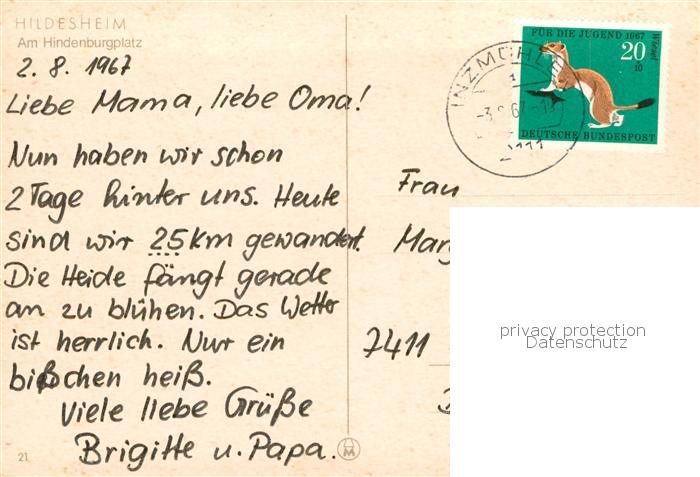 HILDESHEIM
Am Hindenburgplatz
2. 8. 1967
Liebe Mama, liebe Oma!
Nun haben wir schon
2 Tage hinter uns. Heute
sind wir 25 km gewandert.
Die Heide fängt gerade
an zu blühen. Das Wetter
ist herrlich. Nur ein
bißchen heiß.
Viele liebe Grüße
Brigitte u. Papa.
21
FÜR DIE JUGEND 1967
Wiesel
20
+10
DEUTSCHE BUNDESPOST
INZMÜHLEN
2111
Frau
7411
privacy protection
Datenschutz